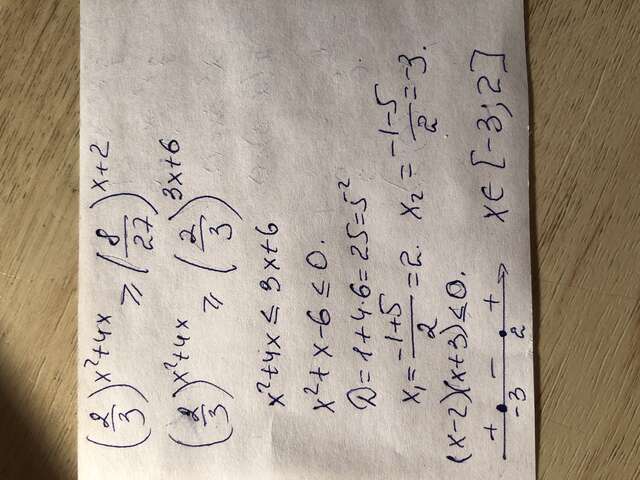 (2/3)^(x²+4x) ⩾ (8/27)^(x+2)
(2/3)^(x²+4x) ⩾ (2/3)^(3x+6)
x²+4x ⩽ 3x+6
x²+x-6 ⩽ 0.
D = 1+4·6 = 25 = 5²
x₁ = (-1+5)/2 = 2. x₂ = (-1-5)/2 = -3.
(x-2)(x+3) ⩽ 0.
+ - +
-3 2 x∈[-3;2]